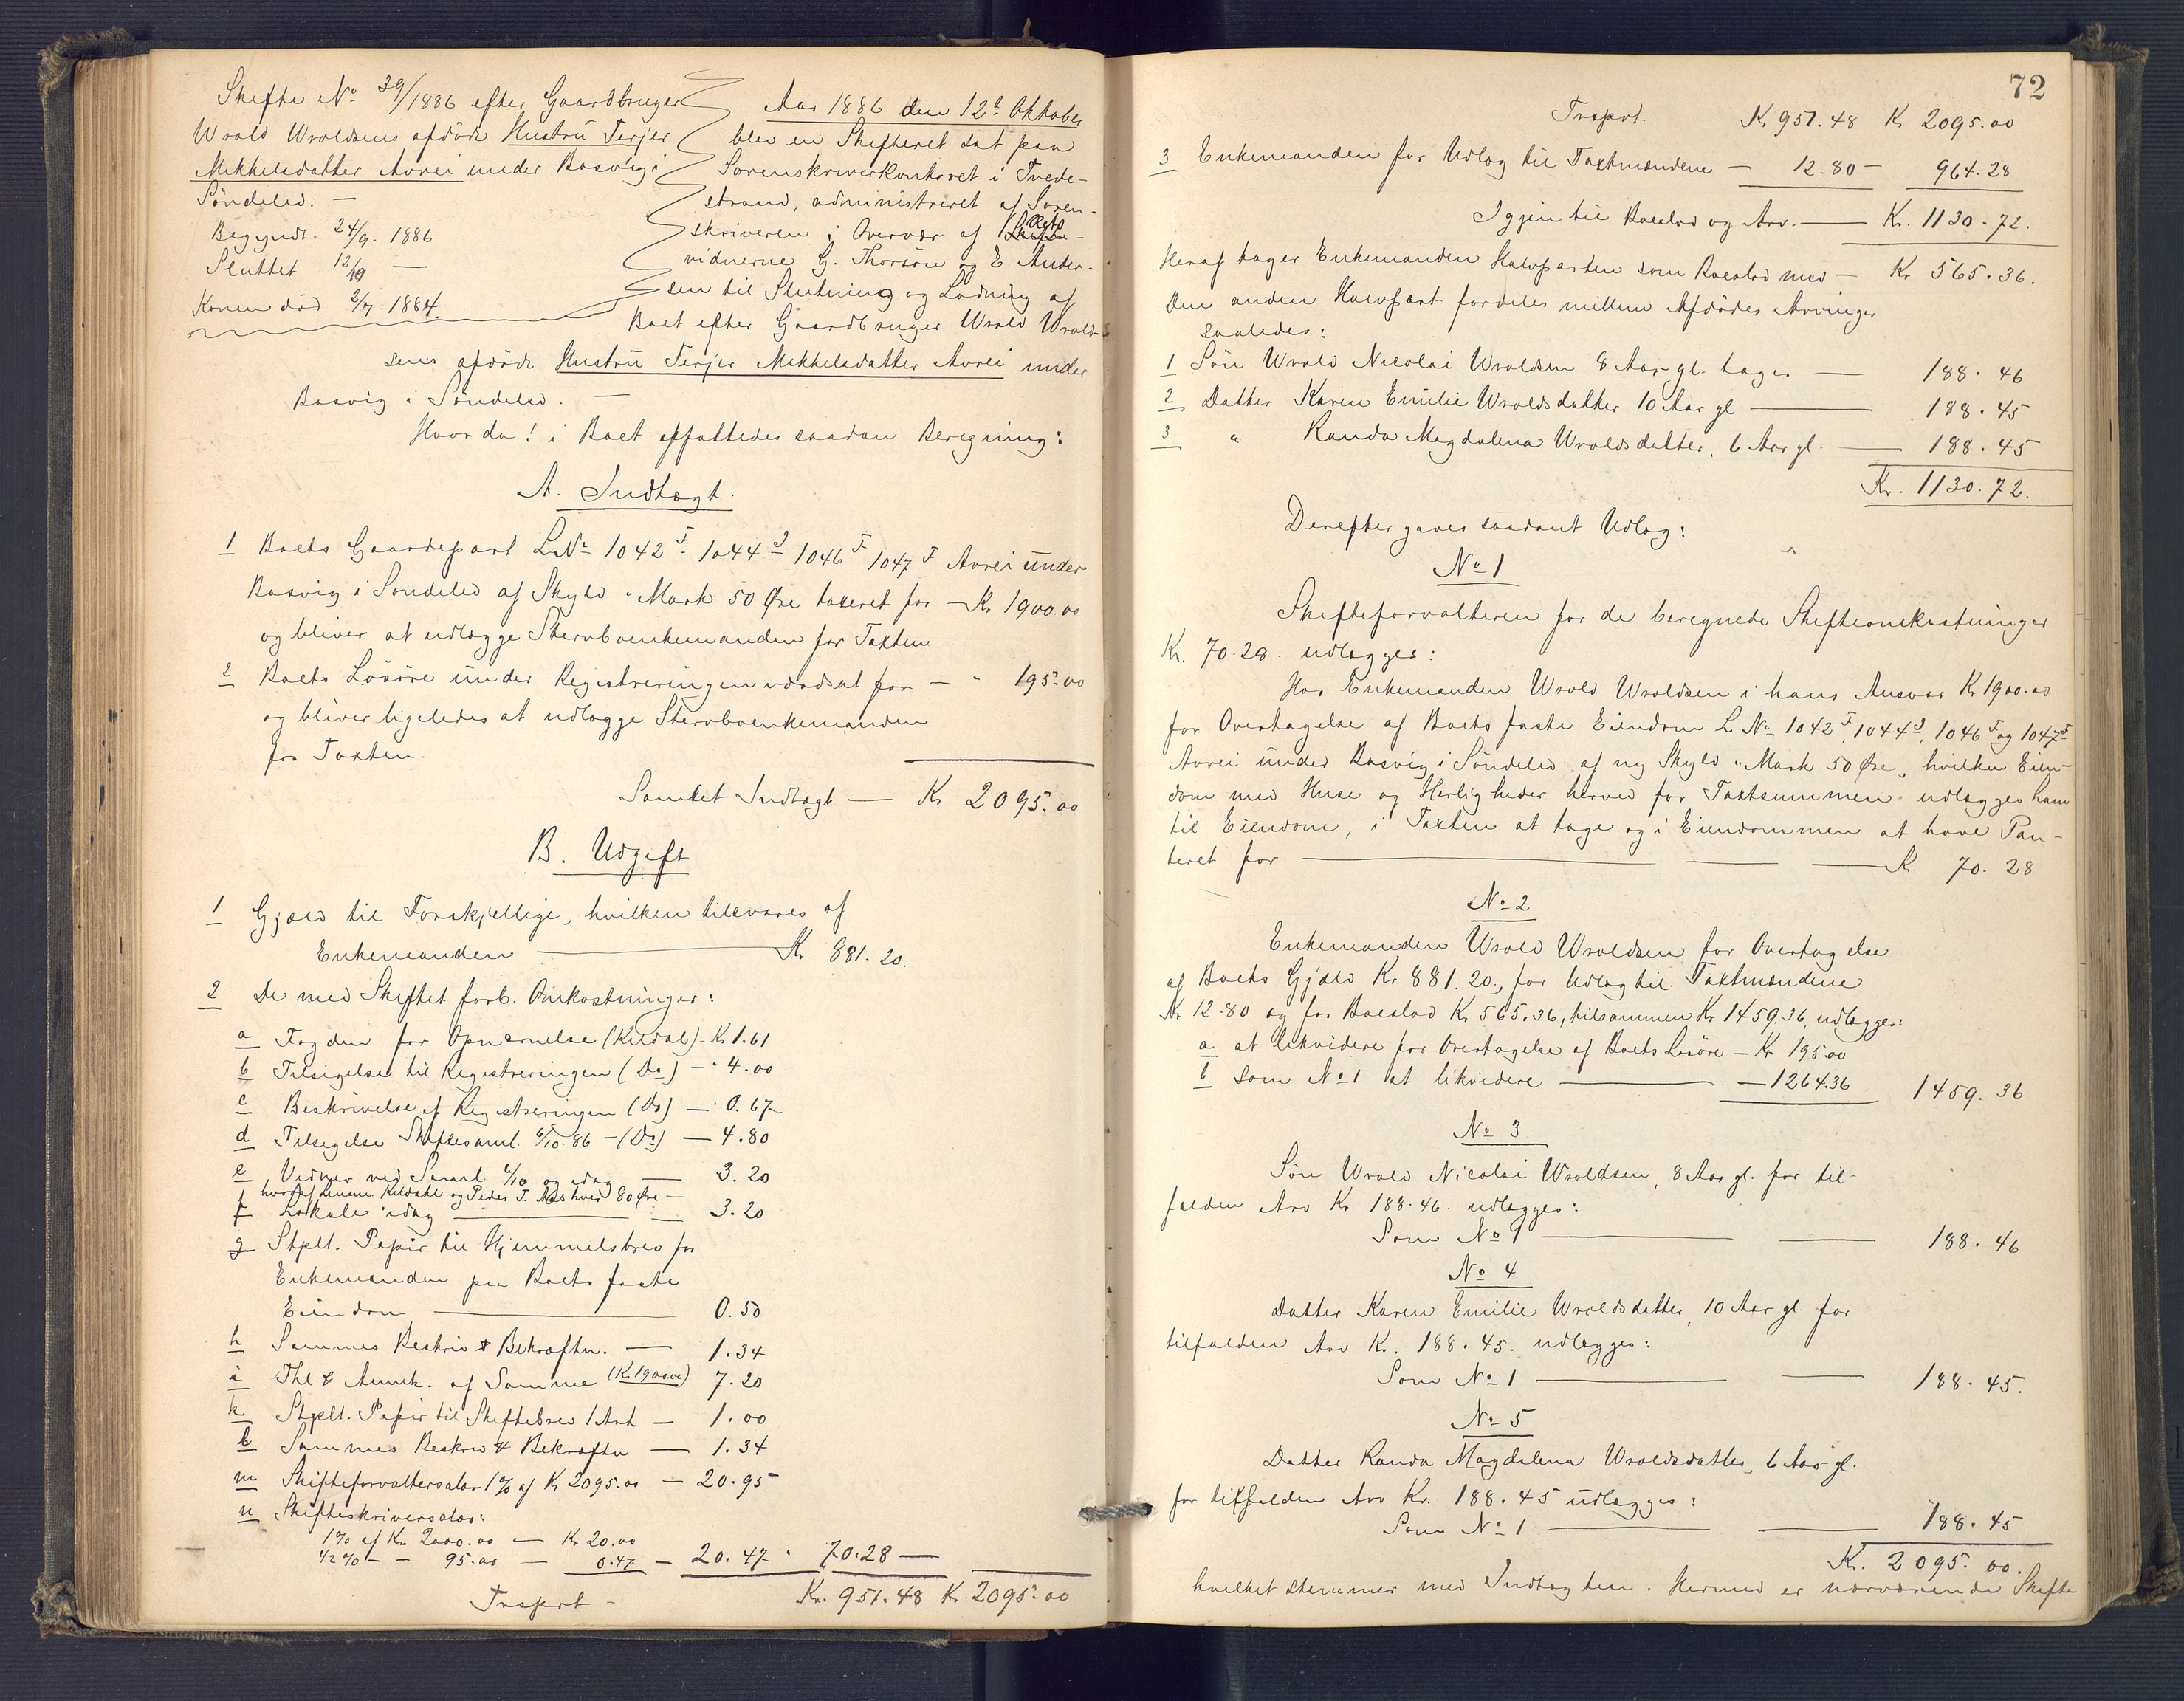 Skifte No 39/1886 efter Gaardbruger
Wrold Wroldsens afdøde Hustru Terjer
Mikkelsdatter Avrei under Bosvig i
Søndeled. —
Begyndt. 24/9. 1886
Sluttet 12/10 —
Konen død 2/7. 1884.
Aar 1886 den 12te Oktober
blev en Skifteret sat paa
Sorenskriverkontoret i Tvede-
strand, administreret af Soren-
skriveren i Overvær af Rets
vidnerne G. Thorsøn og E. Ander-
sen til Slutning og Lodning af
Boet efter Gaardbruger Wrold Wrold-
sens afdøde Hustru Terjer Mikkelsdatter Avrei under
Bosvig i Søndeled. —
Hvorda! i Boet affattedes saadan Beregning:
A. Indtægt.
1 Boets Gaardepart LNo 1042 I 1044 I 1046 I 1047 I Avrei under
Bosvig i Søndeled af Skyld " Mark 50 Øre taxeret for — Kr 1900.00
og bliver at udlægge Stervboenkemanden for Taxten
2 Boets Løsøre under Registreringen værdsat for — " 195.00
og bliver ligeledes at udlægge Stervboenkemanden
for Taxten.
Samlet Indtægt — Kr 2095.00
B. Udgift
1 Gjæld til Forskjellige, hvilken tilsvares af
Enkemanden — Kr. 881.20.
2 De med Skiftet forb. Omkostninger:
a Fogden for Opnævnelse (Kildal) - Kr 1.61
b Tilsigelse til Registreringen (Do) — " 4.00
c Beskrivelse af Registreringen (Do) — " 0.67
d Tilsigelse Skiftesaml. 6/10.86 — (Do) — 4.80
e Vidner ved Saml. 6/10 og idag — 3.20
hvoraf Kildahl og Peder T. hver 80 Øre —
f Lokale idag — 3.20
g Stplt. Papir til Hjemmelsbrev for
Enkemanden paa Boets faste
Eiendom — 0.50
h Sammes Beskriv & Bekræftn. — 1.34
i Thl. & Anmk. af Samme (Kr. 1900.00) 7.20
k Stplt. Papir til Skiftebrev 1 Ark — 1.00
l Sammes Beskriv & Bekræftn — 1.34
m Skifteforvaltersalær 1% af Kr 2095.00 — 20.95
n Skifteskriversalær:
1% af Kr. 2000.00 — Kr 20.00
1/2% — - 95.00 — 0.47 — 20.47 " 70.28 —
Trsport - Kr. 951.48 Kr. 2095.00
72
Trsport. Kr 951.48 Kr 2095.00
3 Enkemanden for Udlæg til Taxtmændene — 12.80 — 964.28
Igjen til Boeslod og Arv. — Kr. 1130.72.
Heraf tager Enkemanden Halvparten som Boeslod med — Kr 565.36.
Den anden Halvpart fordeles mellem Afdødes Arvinger
saaledes:
1 Søn Wrold Nicolai Wroldsen 8 Aar gl. tager — 188.46
2 Datter Karen Emilie Wroldsdatter 10 Aar gl — 188.45
3 " Randa Magdalena Wroldsdatter, 6 Aar gl. — 188.45
Kr. 1130.72.
Derefter gjøres saadant Udlæg:
No 1
Skifteforvalteren for de beregnede Skifteomkostninger
Kr. 70.28. udlægges:
Hos Enkemanden Wrold Wroldsen i hans Ansvar Kr 1900.00
for Overtagelse af Boets faste Eiendom L No 1042 I, 1044 I, 1046 I og 1047 I
Avrei under Bosvig i Søndeled af ny Skyld " Mark 50 Øre, hvilken Eien-
dom med Huse og Herligheder herved for Taxtsummen udlægges ham
til Eiendom, i Taxten at tage og i Eiendommen at have Pan-
teret for — Kr 70.28
No 2
Enkemanden Wrold Wroldsen for Overtagelse
af Boets Gjæld Kr 881.20, for Udlæg til Taxtmændene
Kr 12.80 og for Boeslod Kr 565.36, tilsammen Kr 1459.36, udlægges:
a at likvidere for Overtagelse af Boets Løsøre — Kr 195.00
b som No 1 at likvidere — 1264.36 1459.36
No 3
Søn Wrold Nicolai Wroldsen, 8 Aar gl. for til-
falden Arv Kr 188.46. udlægges:
Som No 1 — 188.46
No 4
Datter Karen Emilie Wroldsdatter, 10 Aar gl. for
tilfalden Arv Kr. 188.45. udlægges:
Som No 1 — 188.45.
No 5
Datter Randa Magdalena Wroldsdatter, 6 Aar gl.
for tilfalden Arv Kr. 188.45 udlægges:
Som No 1 — 188.45
Kr. 2095.00.
hvilket stemmer med Indtægten. Hermed er nærværende Skifte